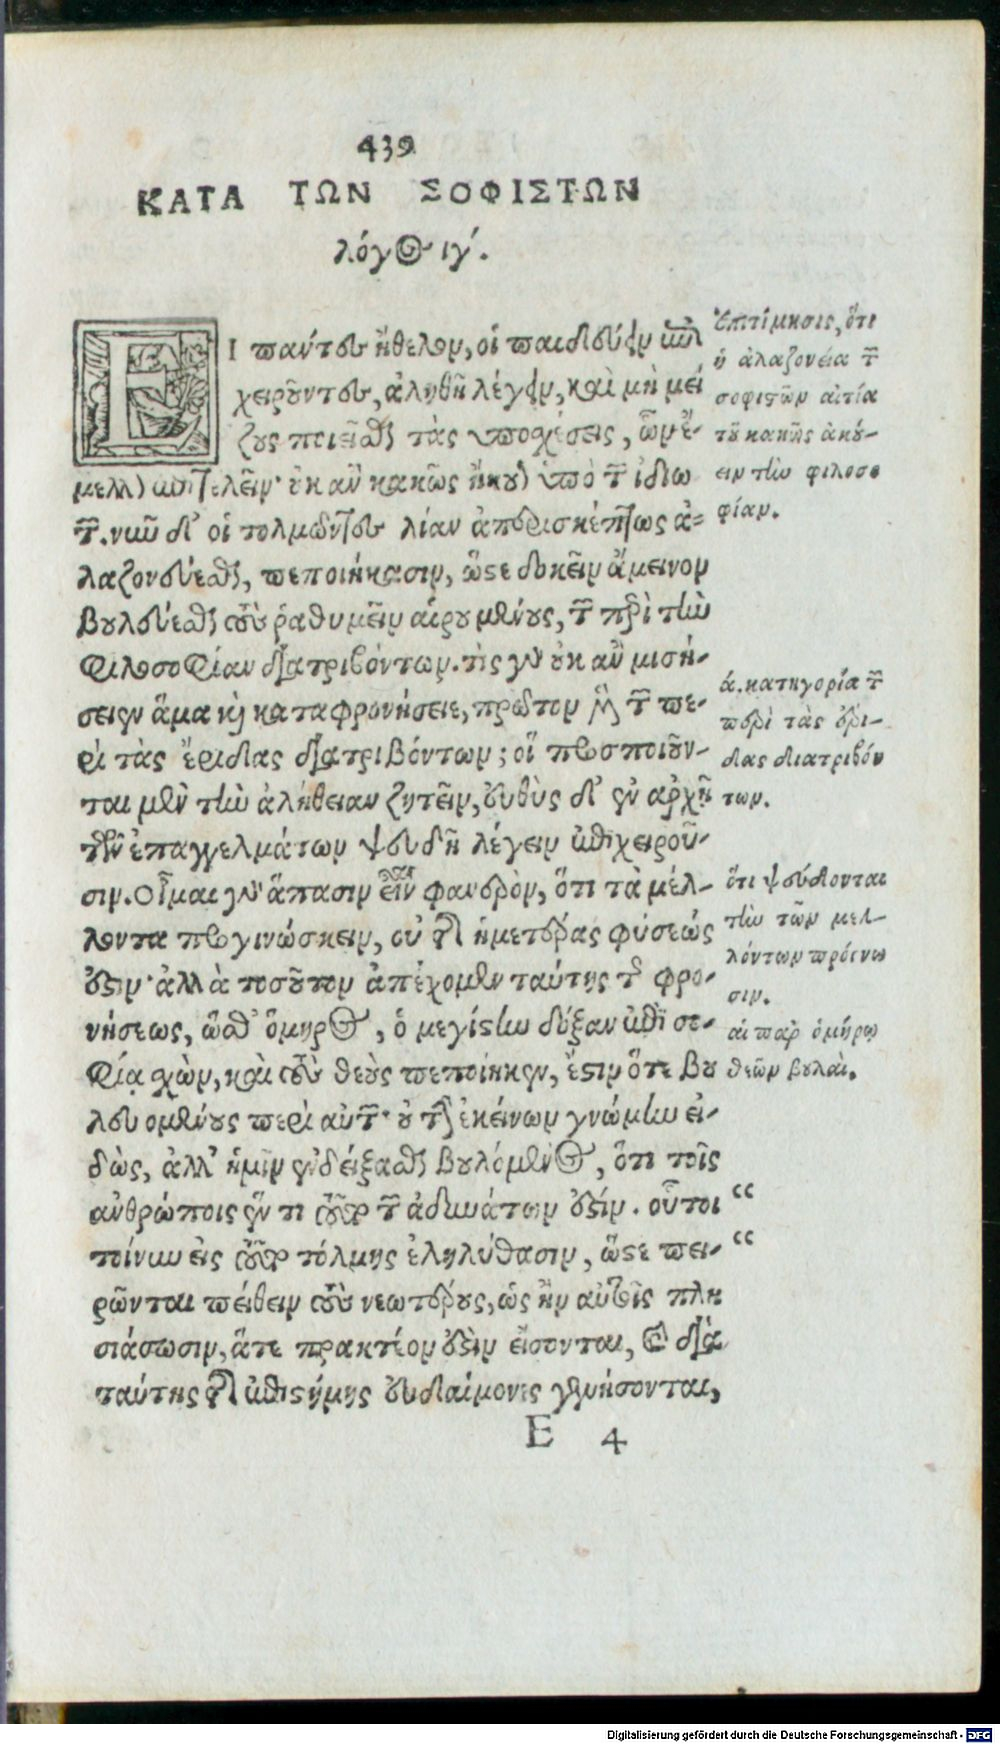 439
ΚΑΤΑ ΤΩΝ ΣΟΦΙΣΤΩΝ
λόγος ιγʹ.
ΕΙ πάντες ἤθελον, οἱ παιδεύειν ἐπι
χειροῦντες, ἀληθῆ λέγειν, καὶ μὴ μεί
ζους ποιεῖσθαι τὰς ὑποσχέσεις, ὧν ἔ-
μελλον ἐπιτελεῖν· οὐκ ἂν κακῶς ἤκουον ὑπὸ τῶν ἰδιω
τῶν. νῦν δ' οἱ τολμῶντες λίαν ἀπερισκέπτως ἀ-
λαζονεύεσθαι, πεποιήκασιν, ὥστε δοκεῖν ἄμεινον
βουλεύεσθαι τοὺς ῥαθυμεῖν αἱρουμένους, τῶν περὶ τὴν
φιλοσοφίαν διατριβόντων. τὶς γὰρ οὐκ ἂν μισή-
σειεν ἅμα καὶ καταφρονήσειε, πρῶτον μὲν τῶν πε-
ρὶ τὰς ἔριδας διατριβόντων; οἳ προσποιοῦν-
ται μὲν τὴν ἀλήθειαν ζητεῖν, εὐθὺς δ' ἐν ἀρχῇ
τῶν ἐπαγγελμάτων ψευδῆ λέγειν ἐπιχειροῦ-
σιν. Οἶμαι γὰρ ἅπασιν εἶναι φανερὸν, ὅτι τὰ μέλ-
λοντα προγινώσκειν, οὐ τῆς ἡμετέρας φύσεώς
ἐστιν· ἀλλὰ τοσοῦτον ἀπέχομεν ταύτης τῆς φρο-
νήσεως, ὥσθ' ὅμηρος, ὁ μεγίστην δόξαν ἐπὶ σο-
φίᾳ σχὼν, καὶ τοὺς θεοὺς πεποίηκεν, ἔστιν ὅτε βου
λευομένους περὶ αὐτῶν· οὐ τὴν ἐκείνων γνώμην εἰ-
δὼς, ἀλλ' ἡμῖν ἐνδείξασθαι βουλόμενος, ὅτι τοῖς
ἀνθρώποις ἓν τι τοῦτο τῶν ἀδυνάτων ἐστίν. οὗτοι “
τοίνυν εἰς τοῦτο τόλμης ἐληλύθασιν, ὥστε πει- “
ρῶνται πείθειν τοὺς νεωτέρους, ὡς ἢν αὐτοῖς πλη
σιάσωσιν, ἅτε πρακτέον ἐστὶν εἴσονται, καὶ διὰ
ταύτης τῆς ἐπιστήμης εὐδαίμονες γενήσονται,
Ε 4
Ἐπιτίμησις, ὅτι
ἡ ἀλαζονεία τῶν
σοφιστῶν αἰτία
τοῦ κακῶς ἀκού-
ειν τὴν φιλοσο
φίαν.
ά. κατηγορία τῶν
περὶ τὰς ἔρι-
δας διατριβόν
των.
ὅτι ψεύδονται
τὴν τῶν μελ-
λόντων πρόγνω
σιν.
αἱ παρ' ὁμήρῳ
θεῶν βουλαὶ.
Digitalisierung gefördert durch die Deutsche Forschungsgemeinschaft - DFG